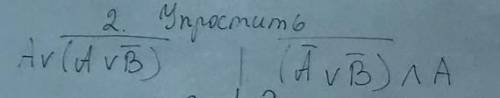 2. Упростить
A∨(‾A ∨ B̅)‾ | (‾A̅ ∨ B̅)‾ ∧ A